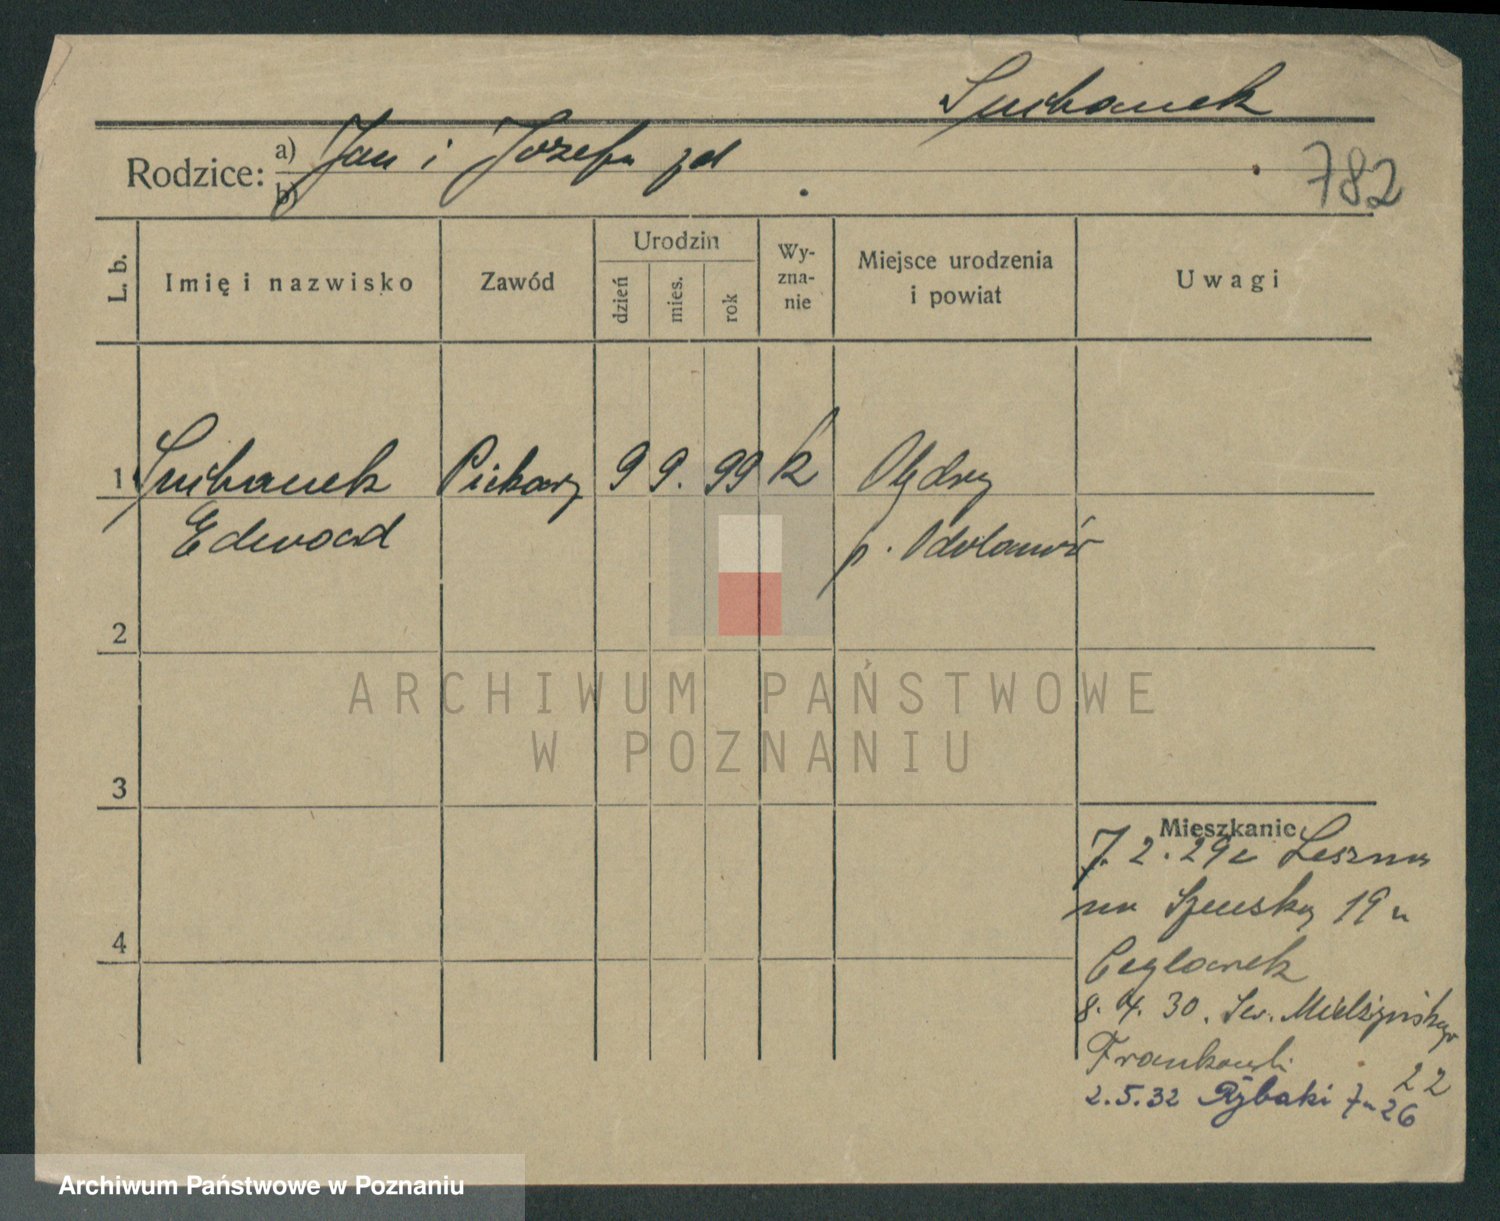 Suchanek
Rodzice: a) Jan i Józefa zd
b)
782
L. b.
Imię i nazwisko
Zawód
Urodzin
dzień
mies.
rok
Wy-
zna-
nie
Miejsce urodzenia
i powiat
Uwagi
1 Suchanek Piekarz 9 9. 99 k
Edward
p. Odolanów
2
ARCHIWUM PAŃSTWOWE
W POZNANIU
3
Mieszkanie
7. 2. 29 z Leszna
19 u
4
8. 4. 30. Sew. Mielżyńskiego
22
2.5.32 Rybaki 7 26
Archiwum Państwowe w Poznaniu